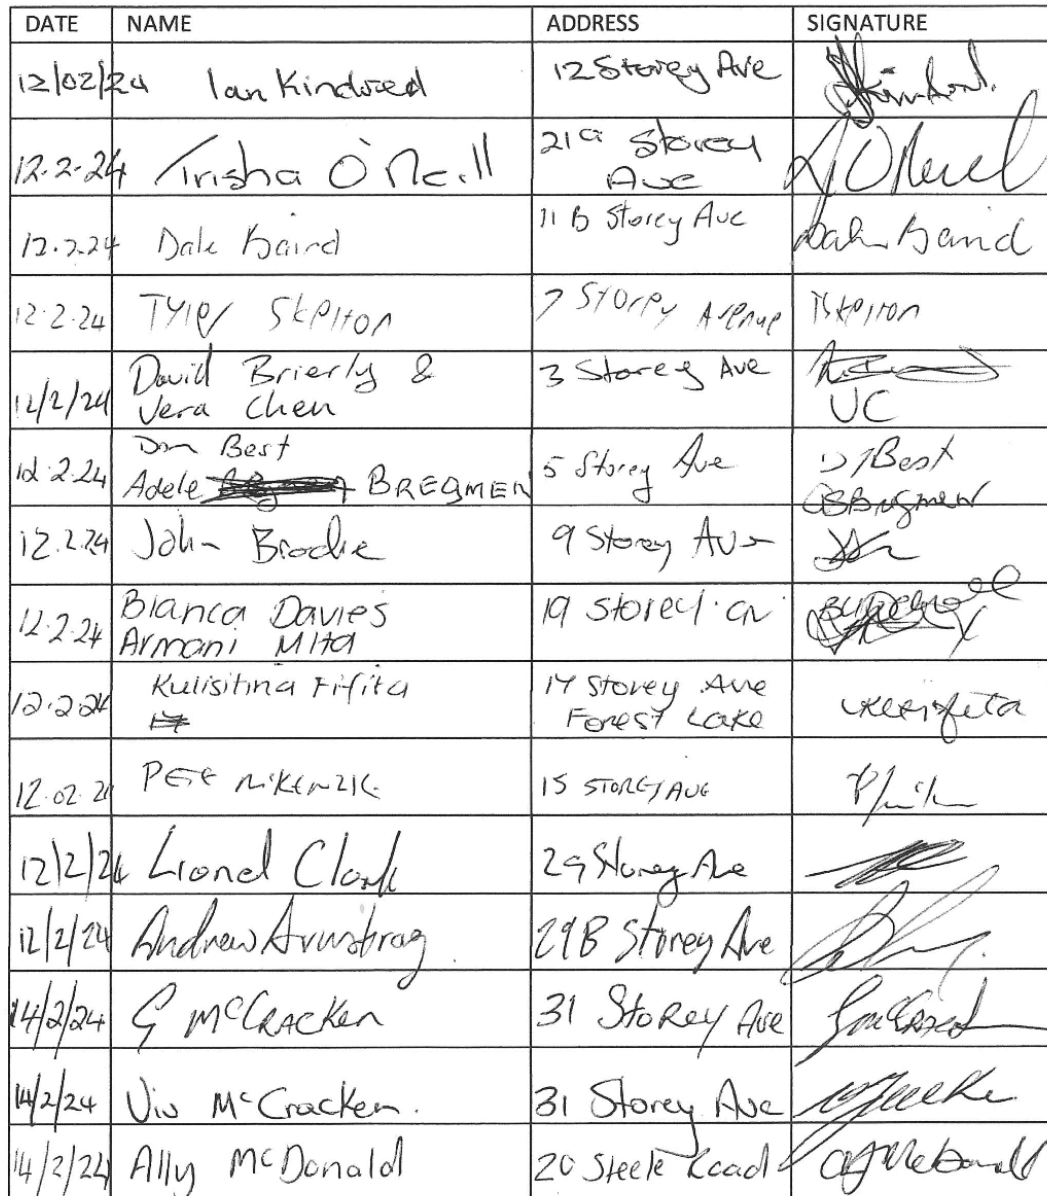 DATE NAME ADDRESS SIGNATURE
12/02/24 Ian Kindred 12 Storey Ave
12.2.24 Trisha O'Neill 21a Storey
Ave
12.2.24 Dale Baird 11 B Storey Ave Dale Baird
12.2.24 Tyler Skelton 7 Storey Avenue TSkelton
David Brierly & 3 Storey Ave
12/2/24 Vera Chen VC
Don Best
12.2.24 Adele BREGMEN 5 Storey Ave Best
12.2.24 John Brodie 9 Storey Ave
Bianca Davies 19 Storey
12.2.24 Armani Mita
Kulisitina Fifita 17 Storey Ave
12.2.24 Forest Lake
12.02.24 PETE McKENZIE 15 STOREY AVE
12/2/24 Lionel Clark 29 Storey Ave
12/2/24 Andrew Armstrong 29B Storey Ave
14/2/24 G McCracken 31 Storey Ave
14/2/24 Viv McCracken. 31 Storey Ave
14/2/24 Ally McDonald 20 Steele Road